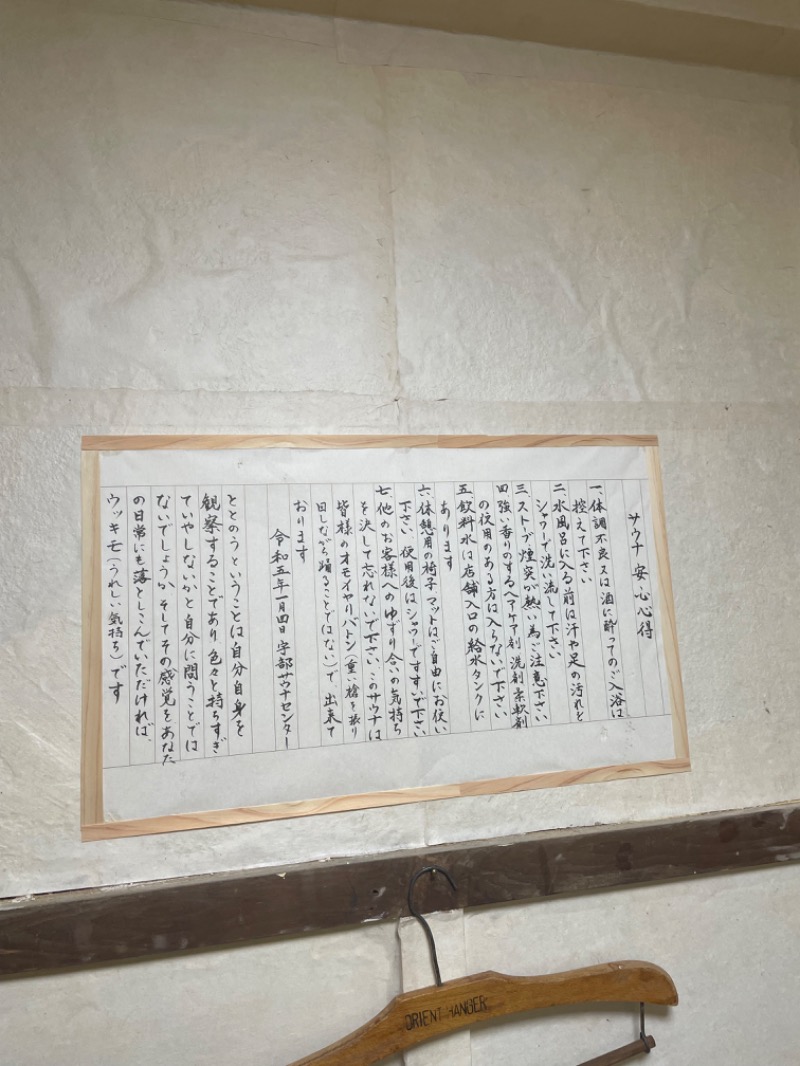 サウナ安心心得
一、体調不良又は酒に酔ってのご入浴は
控えて下さい
二、水風呂に入る前は汗や足の汚れを
シャワーで洗い流して下さい
三、ストーブ煙突が熱い為ご注意下さい
四、強い香りのするヘアケア剤洗剤柔軟剤
の使用のある方は入らないで下さい
五、飲料水は店舗入口の給水タンクに
あります
六、休憩用の椅子マットはご自由にお使い
下さい 使用後はシャワーですすいで下さい
七、他のお客様へのゆずり合いの気持ち
を決して忘れないで下さい、このサウナは
皆様のオモイヤリバトン(重い槍を振り
回しながら踊ることではない)で出来て
おります
令和五年一月四日 宇部サウナセンター
ととのうということは自分自身を
観察することであり色々と持ちすぎ
ていやしないかと自分に問うことでは
ないでしょうか そしてその感覚をあなた
の日常にも落としこんでいただければ、
ウッキモ(うれしい気持ち)です
ORIENT HANGER